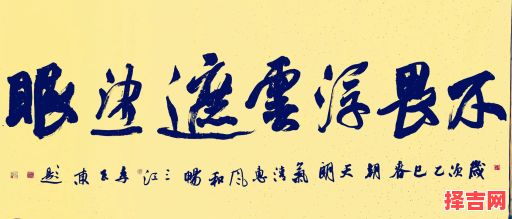 不畏浮雲遮望眼
歲次乙巳春朝天明氣清惠風和暢三江李東題
择吉网